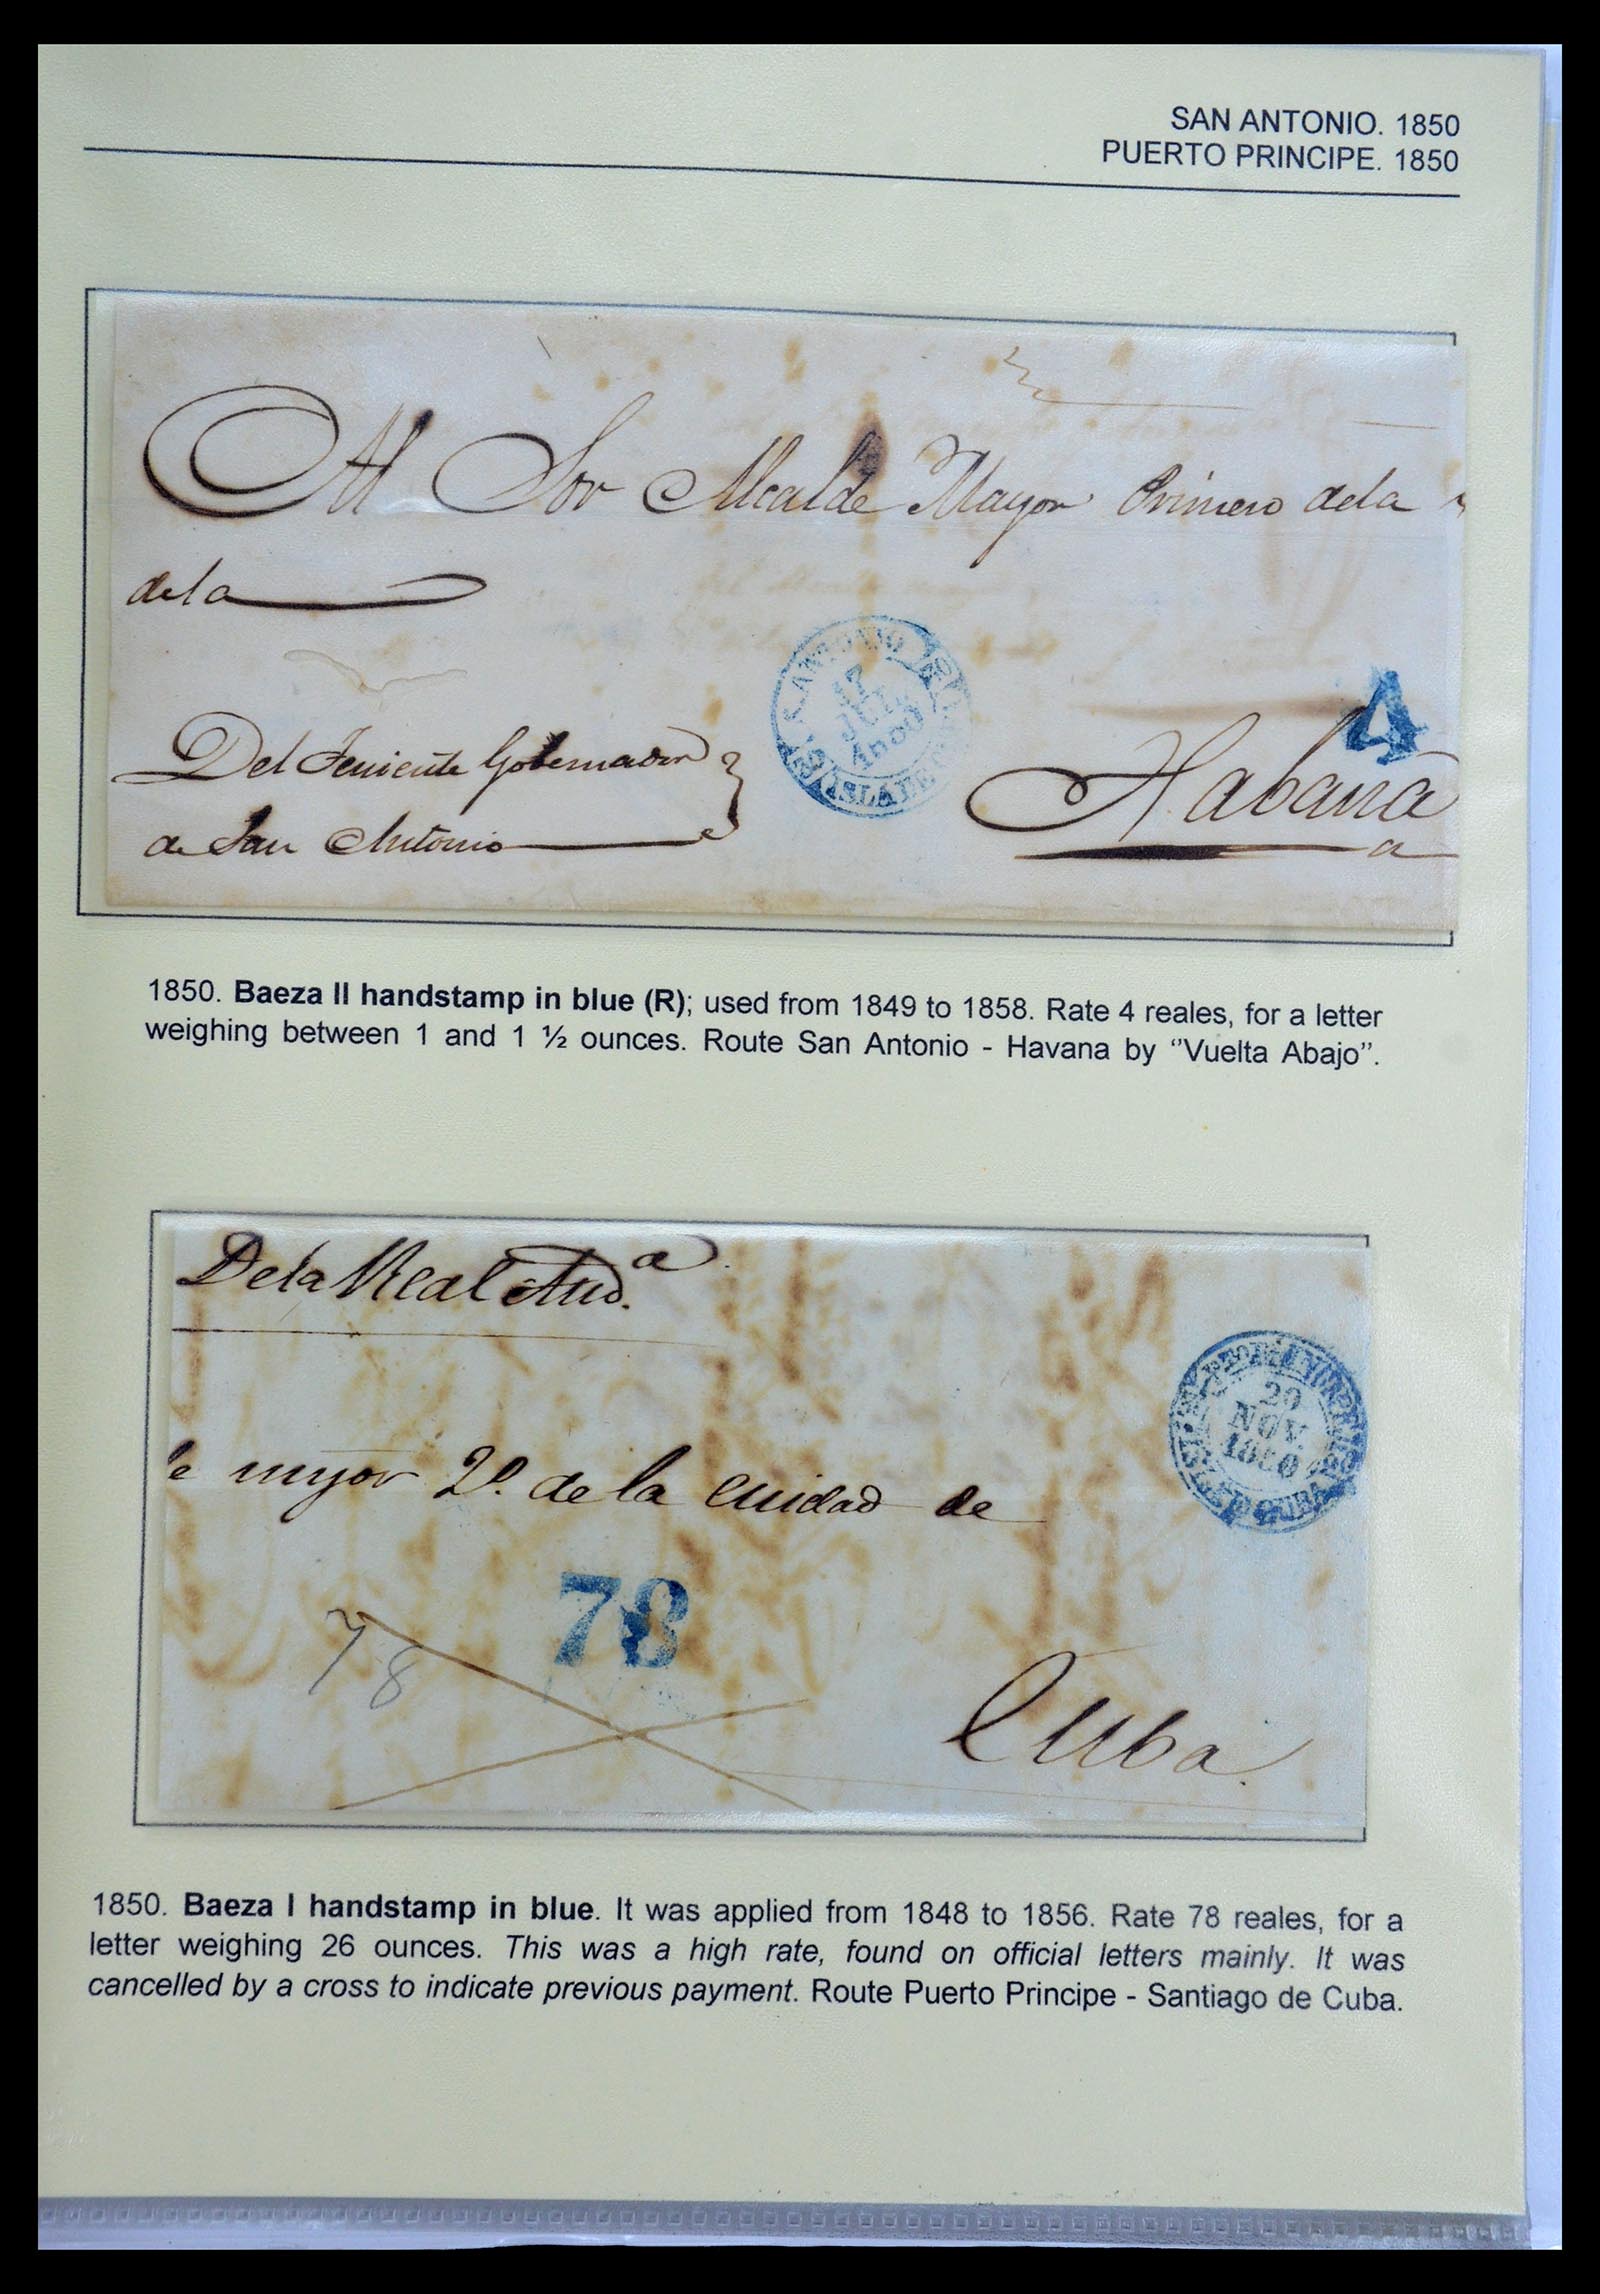 SAN ANTONIO. 1850
PUERTO PRINCIPE. 1850
Al Sor Alcalde Mayor Primero dela
dela
S. ANTONIO
17
JUL
1850
ISLA DE
4
Del Teniente Gobernador
de San Antonio
Habana
a
1850. Baeza II handstamp in blue (R); used from 1849 to 1858. Rate 4 reales, for a letter
weighing between 1 and 1 ½ ounces. Route San Antonio - Havana by ‘’Vuelta Abajo’’.
De la Real Auda.
20
NOV.
1850
CUBA
le myor 2º. de la cuidad de
78
78
Cuba.
1850. Baeza I handstamp in blue. It was applied from 1848 to 1856. Rate 78 reales, for a
letter weighing 26 ounces. This was a high rate, found on official letters mainly. It was
cancelled by a cross to indicate previous payment. Route Puerto Principe - Santiago de Cuba.